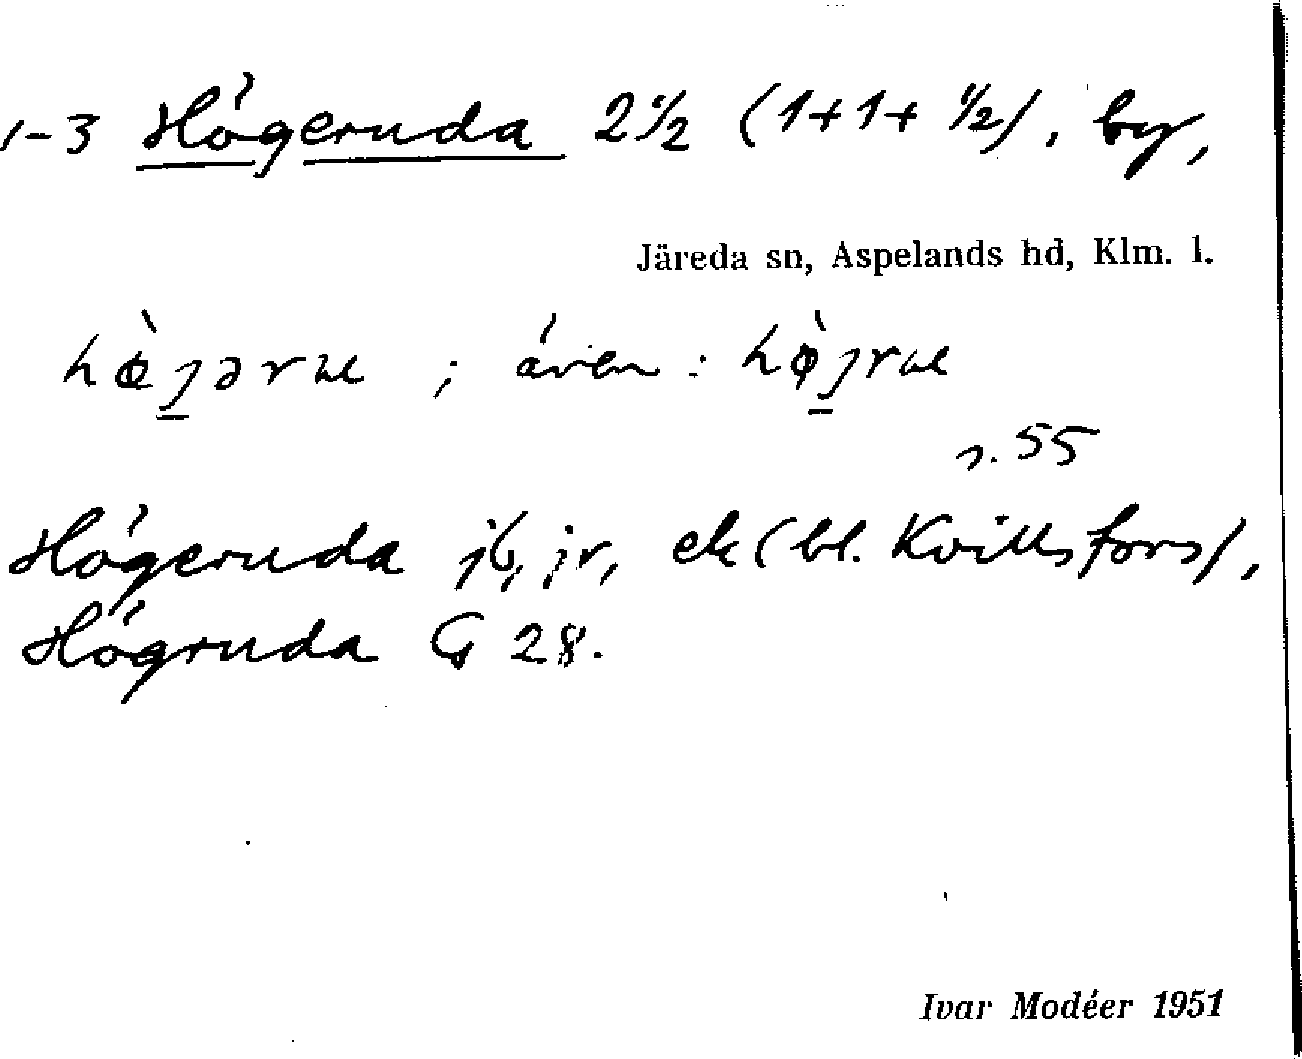 1-3 Högeruda 2 1/2 (1+1+ 1/2), by,
Järeda sn, Aspelands hd, Klm. l.
; även :
s. 55
Högeruda jb, jr, ek (bl. Kvillsfors),
Högruda G 28.
Ivar Modéer 1951